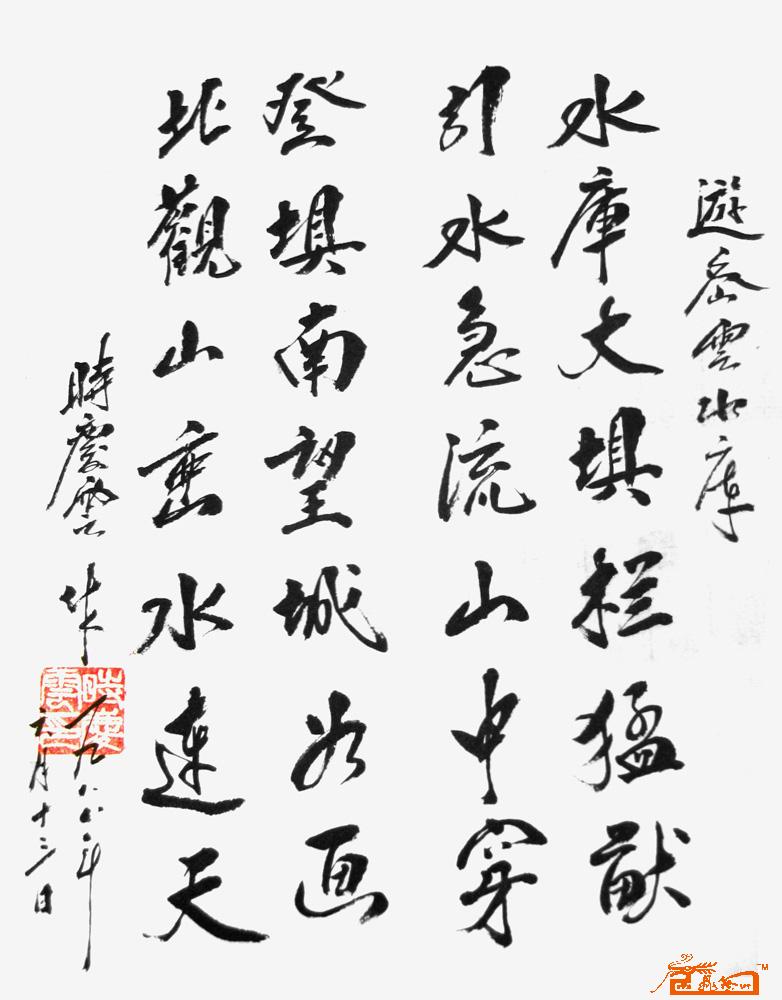 遊岳雲水庫
水庫大埧栏猛獣
引水急流山中穿
登埧南望城如画
北觀山峦水連天
時慶雲作
一九八八年
六月十三日